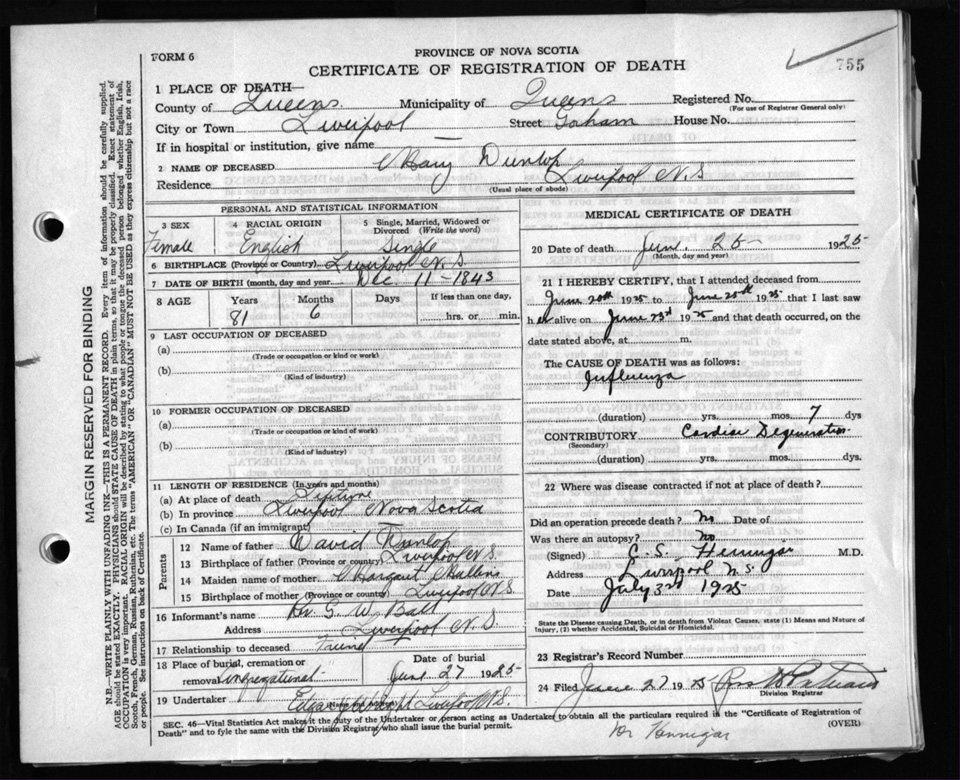 FORM 6
PROVINCE OF NOVA SCOTIA
CERTIFICATE OF REGISTRATION OF DEATH
755
1 PLACE OF DEATH—
County of Queens. Municipality of Queens Registered No.
(For use of Registrar General only)
City or Town Liverpool Street Goham House No.
If in hospital or institution, give name —
2 NAME OF DECEASED Mary Dunlop
Residence Liverpool N.S
(Usual place of abode)
PERSONAL AND STATISTICAL INFORMATION
3 SEX Female
4 RACIAL ORIGIN English
5 Single, Married, Widowed or Divorced (Write the word) Single
6 BIRTHPLACE (Province or Country) Liverpool N.S.
7 DATE OF BIRTH (month, day and year) Dec. 11-1843
8 AGE Years Months Days If less than one day,
81 6 hrs. or min.
9 LAST OCCUPATION OF DECEASED
(a)
(Trade or occupation or kind or work)
(b)
(Kind of industry)
10 FORMER OCCUPATION OF DECEASED
(a)
(Trade or occupation or kind of work)
(b)
(Kind of industry)
11 LENGTH OF RESIDENCE (In years and months)
(a) At place of death Lifetime
(b) In province Liverpool Nova Scotia
(c) In Canada (if an immigrant)
Parents
12 Name of father David Dunlop
13 Birthplace of father (Province or country) Liverpool N.S.
14 Maiden name of mother Margaret
15 Birthplace of mother (Province or country) Liverpool N.S
16 Informant's name W. Ball
Address Liverpool N.S.
17 Relationship to deceased Friend
18 Place of burial, cremation or removal Congregational
Date of burial June 27 1925
19 Undertaker Liverpool N.S.
MEDICAL CERTIFICATE OF DEATH
20 Date of death June 25 1925
(Month, day and year)
21 I HEREBY CERTIFY, that I attended deceased from
June 20th 1925 to June 25th 1925 that I last saw
her alive on June 23rd 1925 and that death occurred, on the
date stated above, at m.
The CAUSE OF DEATH was as follows:
Influenza
(duration) yrs. mos. 7 dys
CONTRIBUTORY Cardiac Degeneration
(Secondary)
(duration) yrs. mos. dys.
22 Where was disease contracted if not at place of death?
Did an operation precede death? No Date of
Was there an autopsy? No
(Signed) C. S. Hennigar M.D.
Address Liverpool N.S.
Date July 3rd 1925
State the Disease causing Death, or in death from Violent Causes, state (1) Means and Nature of
Injury, (2) whether Accidental, Suicidal or Homicidal.
23 Registrar's Record Number
24 Filed June 27 1925
Division Registrar
SEC. 46—Vital Statistics Act makes it the duty of the Undertaker or person acting as Undertaker to obtain all the particulars required in the "Certificate of Registration of
Death" and to fyle the same with the Division Registrar who shall issue the burial permit.
(OVER)
Dr Hennigar
MARGIN RESERVED FOR BINDING
N.B.—WRITE PLAINLY WITH UNFADING INK—THIS IS A PERMANENT RECORD. Every item of information should be carefully supplied.
AGE should be stated EXACTLY. PHYSICIANS should STATE CAUSE OF DEATH in plain terms, so that it may be properly classified. Exact statement of
OCCUPATION is very important. RACIAL ORIGIN will be described by stating to what people or tongue the deceased person belonged whether English, Irish,
Scotch, French, German, Russian, Ruthenian, etc. The terms "AMERICAN" OR "CANADIAN" MUST NOT BE USED as they express citizenship but not a race
of people. See instructions on back of Certificate.